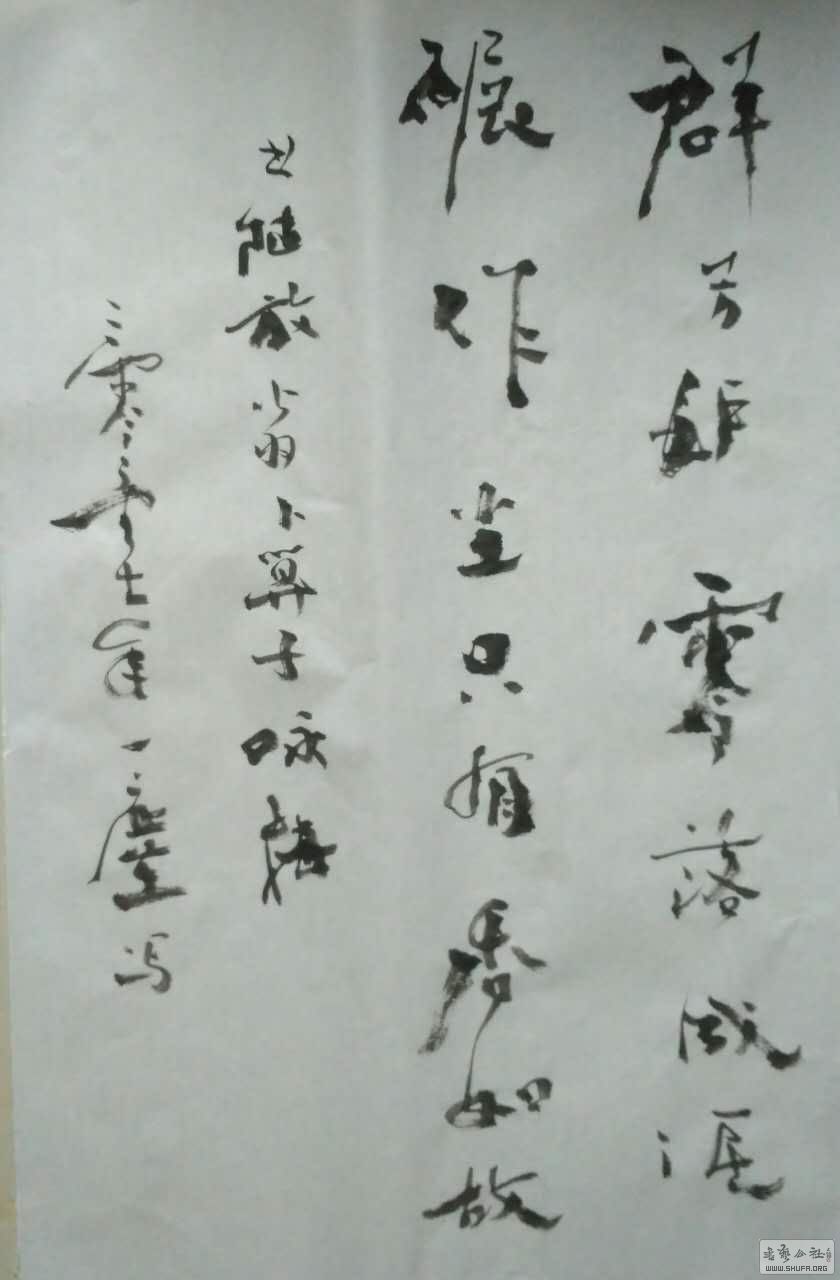 群芳妒零落成泥
碾作尘只有香如故
书陸放翁卜算子咏梅
二零零七年一塵写
書藝公社
WWW.SHUFA.ORG